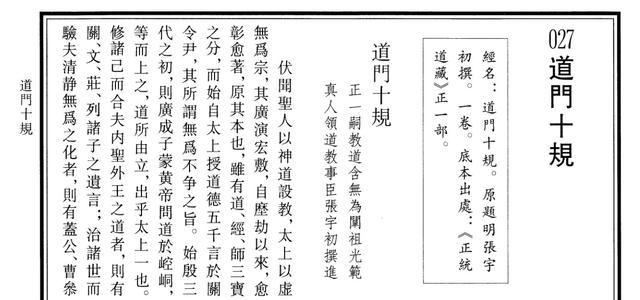 027道門十規
經名：道門十規。原題明張宇
初撰。一卷。底本出處：《正統
道藏》正一部。
道門十規
正一嗣教道合無為闡祖光範
真人領道教事臣張宇初撰進
伏聞聖人以神道設教，太上以虛
無爲宗，其廣演宏敷，自歷劫以來，愈
彰愈著，原其本也，雖有道、經、師三寶
之分，而始自太上授道德五千言於關
令尹，其所謂無爲不争之旨。始殷三
代之初，則廣成子蒙黄帝問道於崆峒，
等而上之，道所由立，出乎太上一也。
修諸己而合夫内聖外王之道者，則有
關、文、莊、列諸子之遺言；治諸世而
驗夫清静無爲之化者，則有蓋公、曹參
道門十規